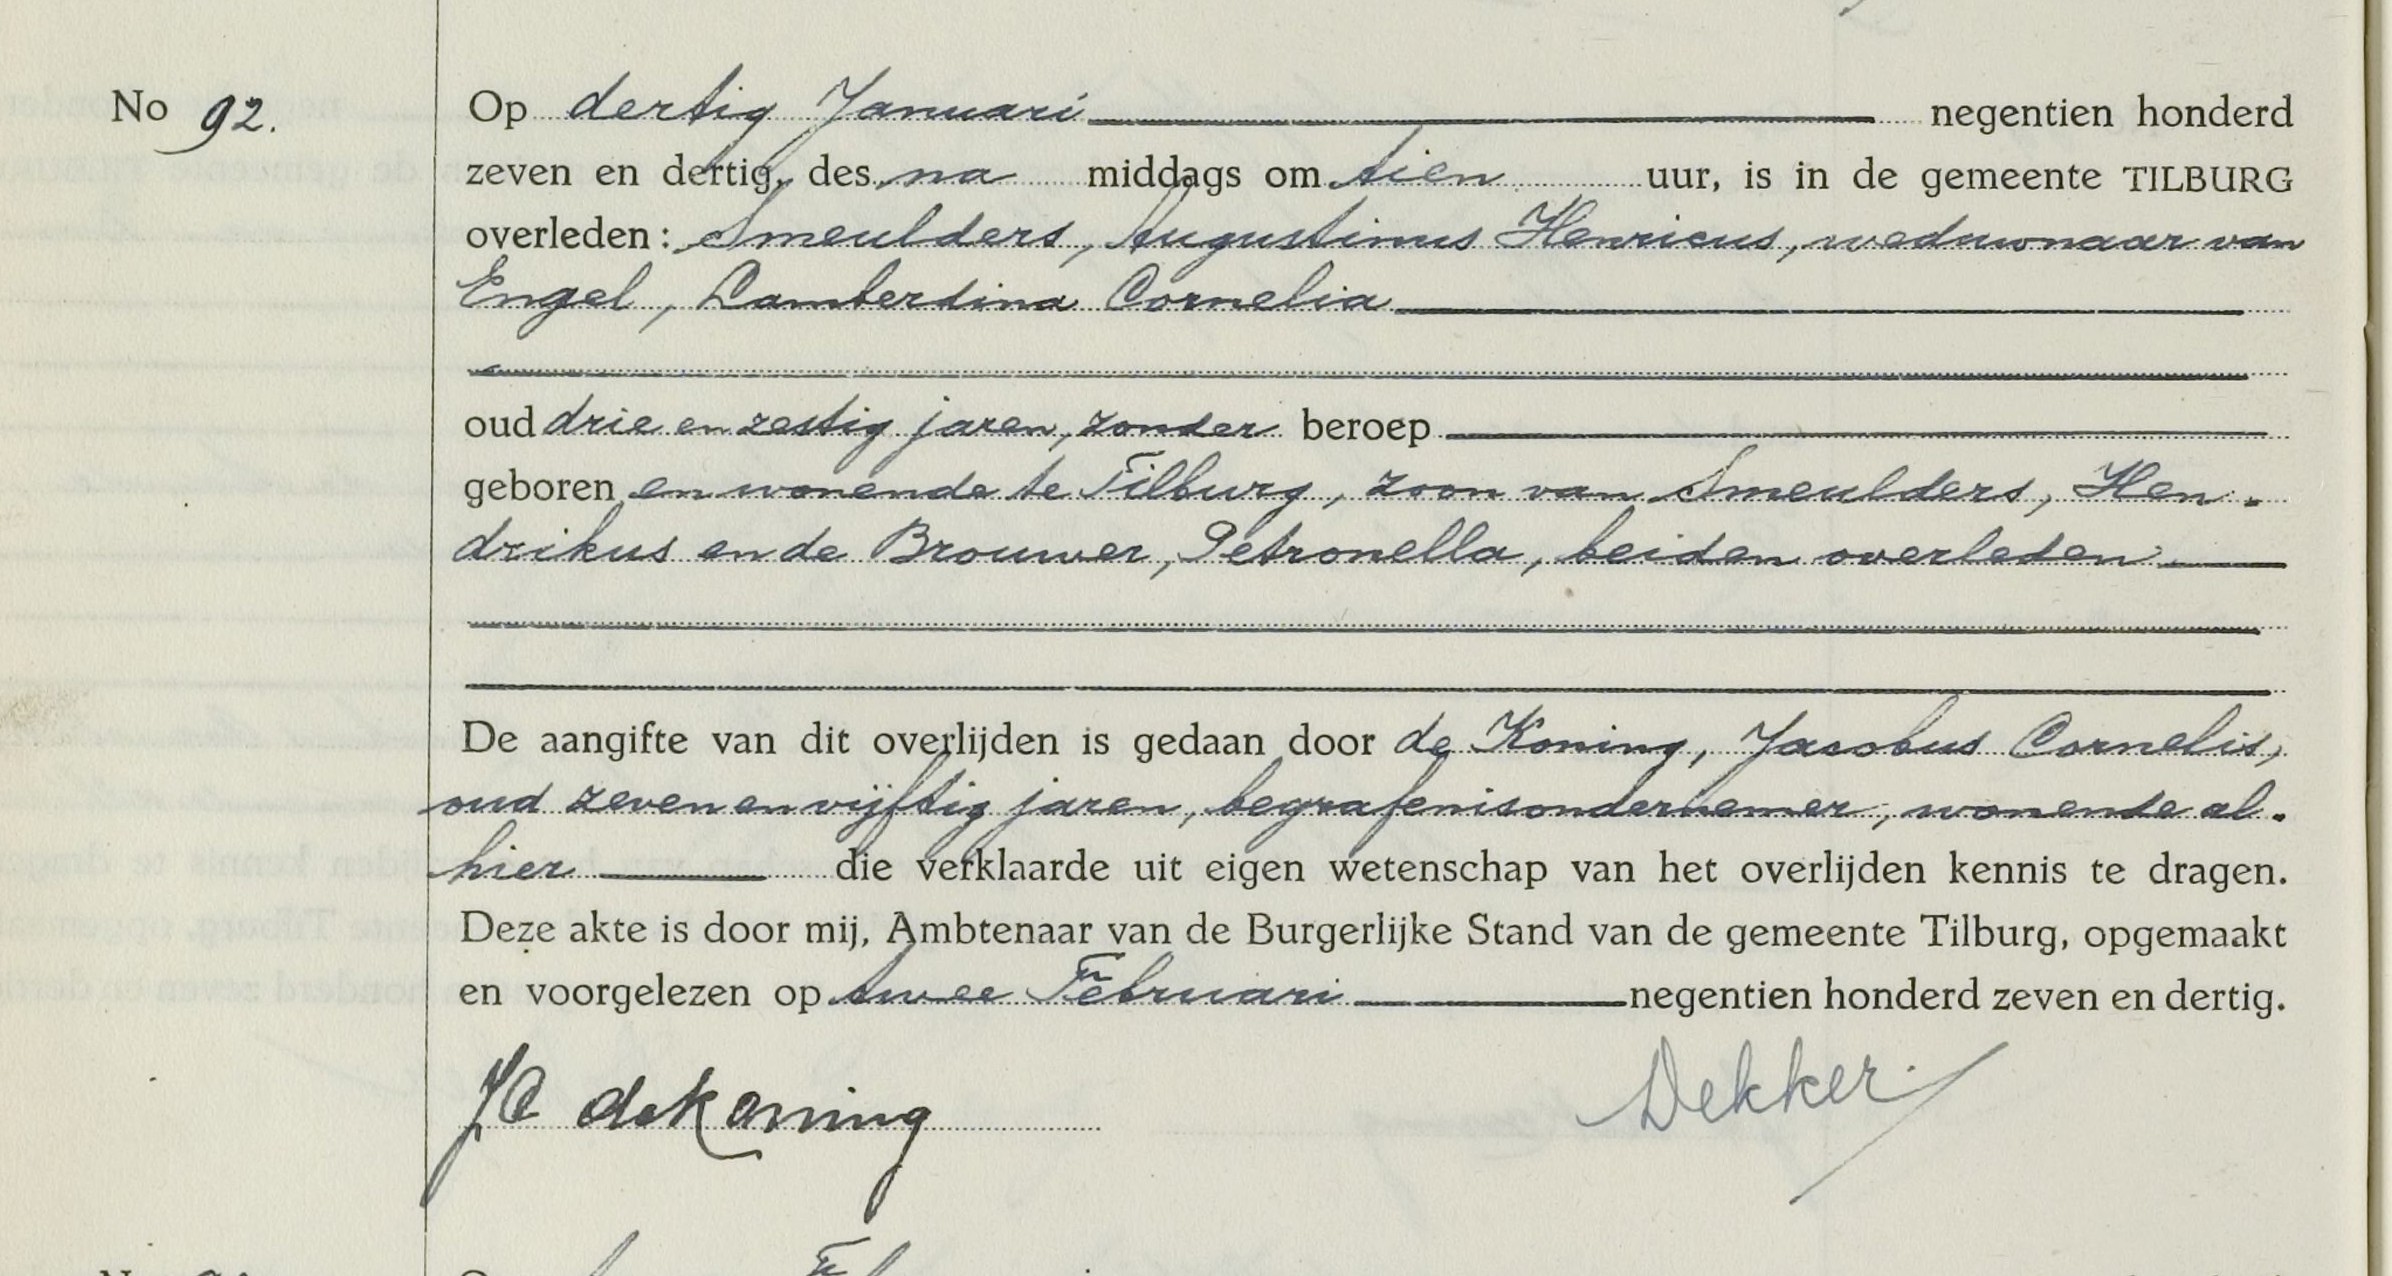 No 92.
Op dertig Januari negentien honderd
zeven en dertig, des na middags om tien uur, is in de gemeente TILBURG
overleden: Smeulders, Augustinus Henricus, weduwnaar van
Engel, Lamberdina Cornelia
oud drie en zestig jaren, zonder beroep
geboren en wonende te Tilburg, zoon van Smeulders, Hen-
drikus en de Brouwer, Petronella, beiden overleden
De aangifte van dit overlijden is gedaan door de Koning, Jacobus Cornelis,
oud zeven en vijftig jaren, begrafenisondernemer, wonende al-
hier die verklaarde uit eigen wetenschap van het overlijden kennis te dragen.
Deze akte is door mij, Ambtenaar van de Burgerlijke Stand van de gemeente Tilburg, opgemaakt
en voorgelezen op twee Februari negentien honderd zeven en dertig.
JC de Koning Dekker.